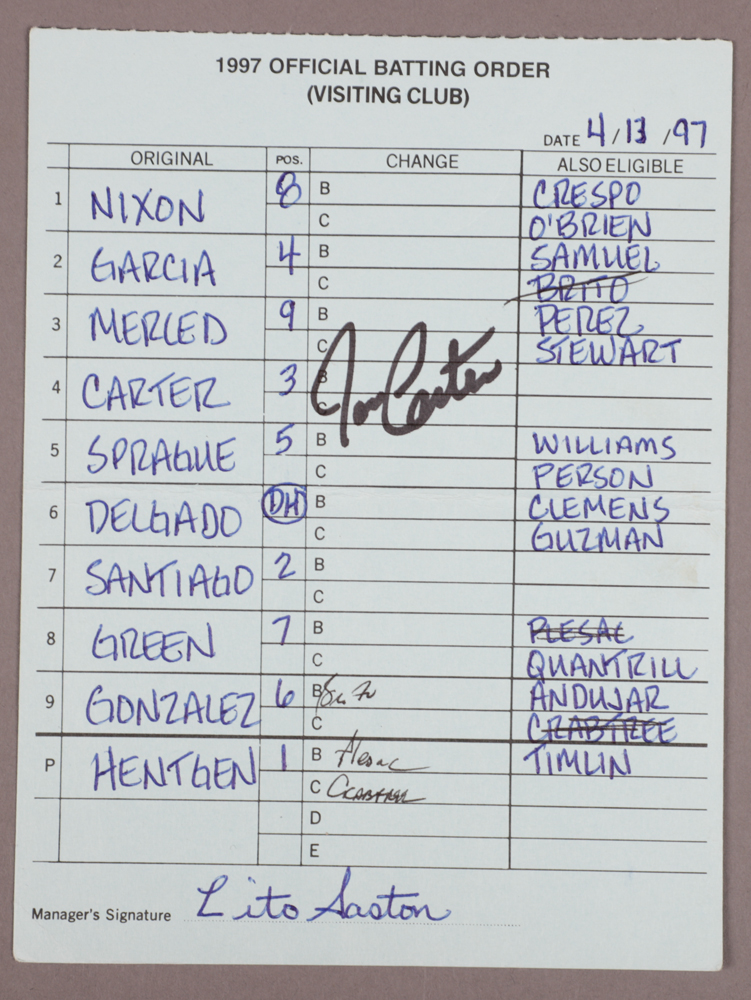 1997 OFFICIAL BATTING ORDER
(VISITING CLUB)
DATE 4/13/97
ORIGINAL POS. CHANGE ALSO ELIGIBLE
1 NIXON 8 B CRESPO
C O'BRIEN
2 GARCIA 4 B SAMUEL
C BRITO
3 MERCED 9 B PEREZ
C STEWART
4 CARTER 3 B Joe Carter
C
5 SPRAGUE 5 B WILLIAMS
C PERSON
6 DELGADO DH B CLEMENS
C GUZMAN
7 SANTIAGO 2 B
C
8 GREEN 7 B PLESAC
C QUANTRILL
9 GONZALEZ 6 B Brito ANDUJAR
C CRABTREE
P HENTGEN 1 B Plesac TIMLIN
C CRABTREE
D
E
Manager's Signature Cito Gaston